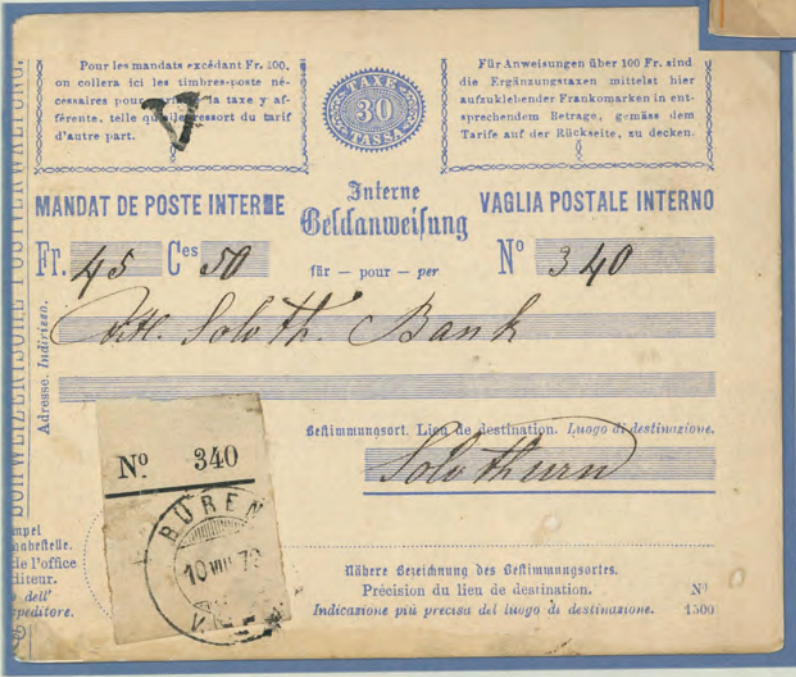 Pour les mandats excédant Fr. 100,
on collera ici les timbres-poste né-
cessaires pour la taxe y af-
férente, telle qu'elle ressort du tarif
d'autre part.
V
TAXE
30
TASSA
Für Anweisungen über 100 Fr. sind
die Ergänzungstaxen mittelst hier
aufzuklebender Frankomarken in ent-
sprechendem Betrage, gemäss dem
Tarife auf der Rückseite, zu decken.
MANDAT DE POSTE INTERNE
Interne
Geldanweisung
VAGLIA POSTALE INTERNO
Fr. 45 Ces 50
für — pour — per
No 340
Soloth. Bank
Adresse. Indirizzo.
SCHWEIZERISCHE POSTVERWALTUNG.
Bestimmungsort. Lieu de destination. Luogo di destinazione.
Solothurn
No 340
BÜREN
10 VIII 79
de l'office
dell'
Nähere Bezeichnung des Bestimmungsortes.
Précision du lieu de destination.
Indicazione più precisa del luogo di destinazione.
No
1500